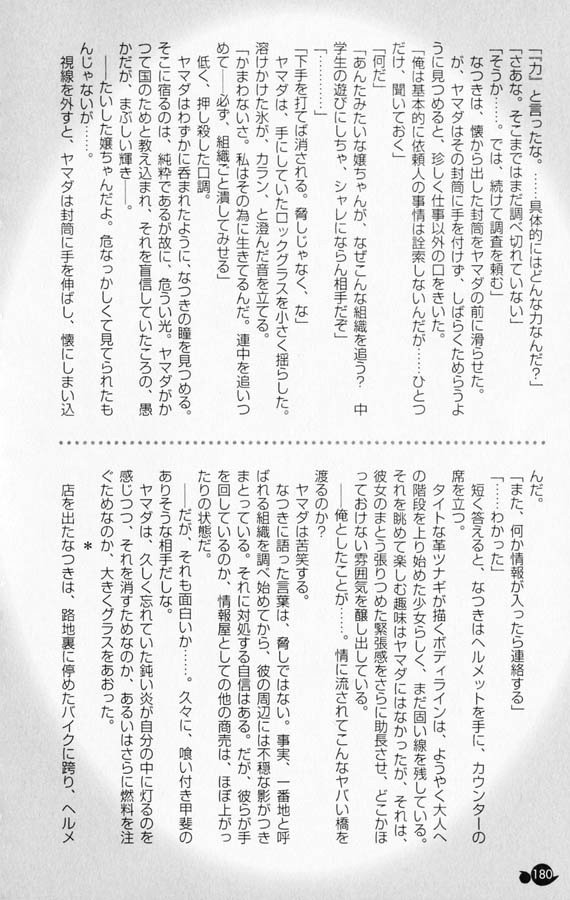 「『力』と言ったな。……具体的にはどんな力なんだ？」
「さあな。そこまではまだ調べ切れていない」
「そうか……。では、続けて調査を頼む」
　なつきは、懐から出した封筒をヤマダの前に滑らせた。
が、ヤマダはその封筒に手を付けず、しばらくためらうよ
うに見つめると、珍しく仕事以外の口をきいた。
「俺は基本的に依頼人の事情は詮索しないんだが……ひとつ
だけ、聞いておく」
「何だ」
「あんたみたいな嬢ちゃんが、なぜこんな組織を追う？　中
学生の遊びにしちゃ、シャレにならん相手だぞ」
「…………」
「下手を打てば消される。脅しじゃなく、な」
　ヤマダは、手にしていたロックグラスを小さく揺らした。
溶けかけた氷が、カラン、と澄んだ音を立てる。
「かまわないさ。私はその為に生きてるんだ。連中を追いつ
めて――必ず、組織ごと潰してみせる」
　低く、押し殺した口調。
　ヤマダはわずかに呑まれたように、なつきの瞳を見つめる。
そこに宿るのは、純粋であるが故に、危うい光。ヤマダがか
つて国のためと教え込まれ、それを盲信していたころの、愚
かだが、まぶしい輝き――。
　――たいした嬢ちゃんだよ。危なっかしくて見てられたも
んじゃないが……。
　視線を外すと、ヤマダは封筒に手を伸ばし、懐にしまい込
んだ。
「また、何か情報が入ったら連絡する」
「……わかった」
　短く答えると、なつきはヘルメットを手に、カウンターの
席を立つ。
　タイトな革ツナギが描くボディラインは、ようやく大人へ
の階段を上り始めた少女らしく、まだ固い線を残している。
それを眺めて楽しむ趣味はヤマダにはなかったが、それは、
彼女のまとう張りつめた緊張感をさらに助長させ、どこかほ
っておけない雰囲気を醸し出している。
　――俺としたことが……。情に流されてこんなヤバい橋を
渡るのか？
　ヤマダは苦笑する。
　なつきに語った言葉は、脅しではない。事実、一番地と呼
ばれる組織を調べ始めてから、彼の周辺には不穏な影がつき
まとっている。それに対処する自信はある。だが、彼らが手
を回しているのか、情報屋としての他の商売は、ほぼ上がっ
たりの状態だ。
　――だが、それも面白いか……。久々に、喰い付き甲斐の
ありそうな相手だしな。
　ヤマダは、久しく忘れていた鈍い炎が自分の中に灯るのを
感じつつ、それを消すためなのか、あるいはさらに燃料を注
ぐためなのか、大きくグラスをあおった。
＊
　店を出たなつきは、路地裏に停めたバイクに跨り、ヘルメ
180